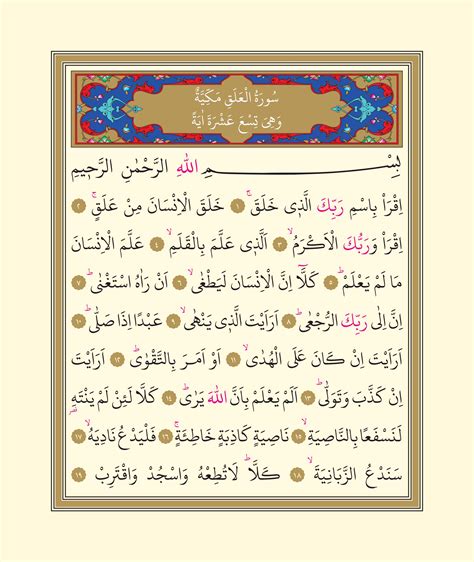 سُورَةُ الْعَلَقِ مَكِّيَّةٌ
وَهِىَ تِسْعَ عَشْرَةَ اٰيَةً
بِسْمِ اللهِ الرَّحْمٰنِ الرَّحِيمِ
اِقْرَأْ بِاسْمِ رَبِّكَ الَّذِى خَلَقَۚ ﴿١﴾ خَلَقَ الْاِنْسَانَ مِنْ عَلَقٍۚ ﴿٢﴾
اِقْرَأْ وَرَبُّكَ الْاَكْرَمُۙ ﴿٣﴾ اَلَّذِى عَلَّمَ بِالْقَلَمِۙ ﴿٤﴾ عَلَّمَ الْاِنْسَانَ
مَا لَمْ يَعْلَمْۜ ﴿٥﴾ كَلَّٓا اِنَّ الْاِنْسَانَ لَيَطْغٰىۙ ﴿٦﴾ اَنْ رَاٰهُ اسْتَغْنٰىۜ ﴿٧﴾
اِنَّ اِلٰى رَبِّكَ الرُّجْعٰىۜ ﴿٨﴾ اَرَاَيْتَ الَّذِى يَنْهٰىۙ ﴿٩﴾ عَبْدًا اِذَا صَلّٰىۜ ﴿١٠﴾
اَرَاَيْتَ اِنْ كَانَ عَلَى الْهُدٰىۙ ﴿١١﴾ اَوْ اَمَرَ بِالتَّقْوٰىۜ ﴿١٢﴾ اَرَاَيْتَ
اِنْ كَذَّبَ وَتَوَلّٰىۜ ﴿١٣﴾ اَلَمْ يَعْلَمْ بِاَنَّ اللهَ يَرٰىۜ ﴿١٤﴾ كَلَّا لَئِنْ لَمْ يَنْتَهِ
لَنَسْفَعًا بِالنَّاصِيَةِۙ ﴿١٥﴾ نَاصِيَةٍ كَاذِبَةٍ خَاطِئَةٍۚ ﴿١٦﴾ فَلْيَدْعُ نَادِيَهُۙ ﴿١٧﴾
سَنَدْعُ الزَّبَانِيَةَۙ ﴿١٨﴾ كَلَّاۜ لَا تُطِعْهُ وَاسْجُدْ وَاقْتَرِبْ ﴿١٩﴾